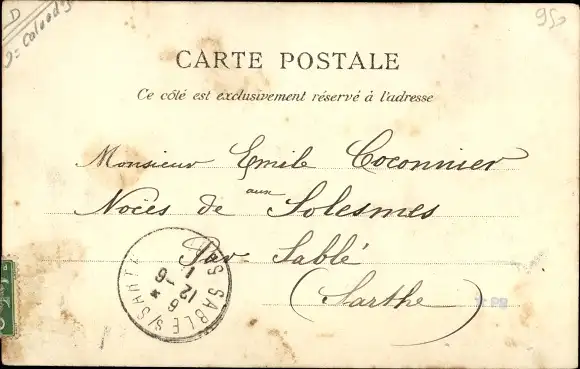 D
Calvados
950
CARTE POSTALE
Ce côté est exclusivement réservé à l'adresse
Monsieur Emile Coconnier
aux
Noces de Solesmes
Par Sablé
(Sarthe)
SABLE S/SARTHE
12
6-6